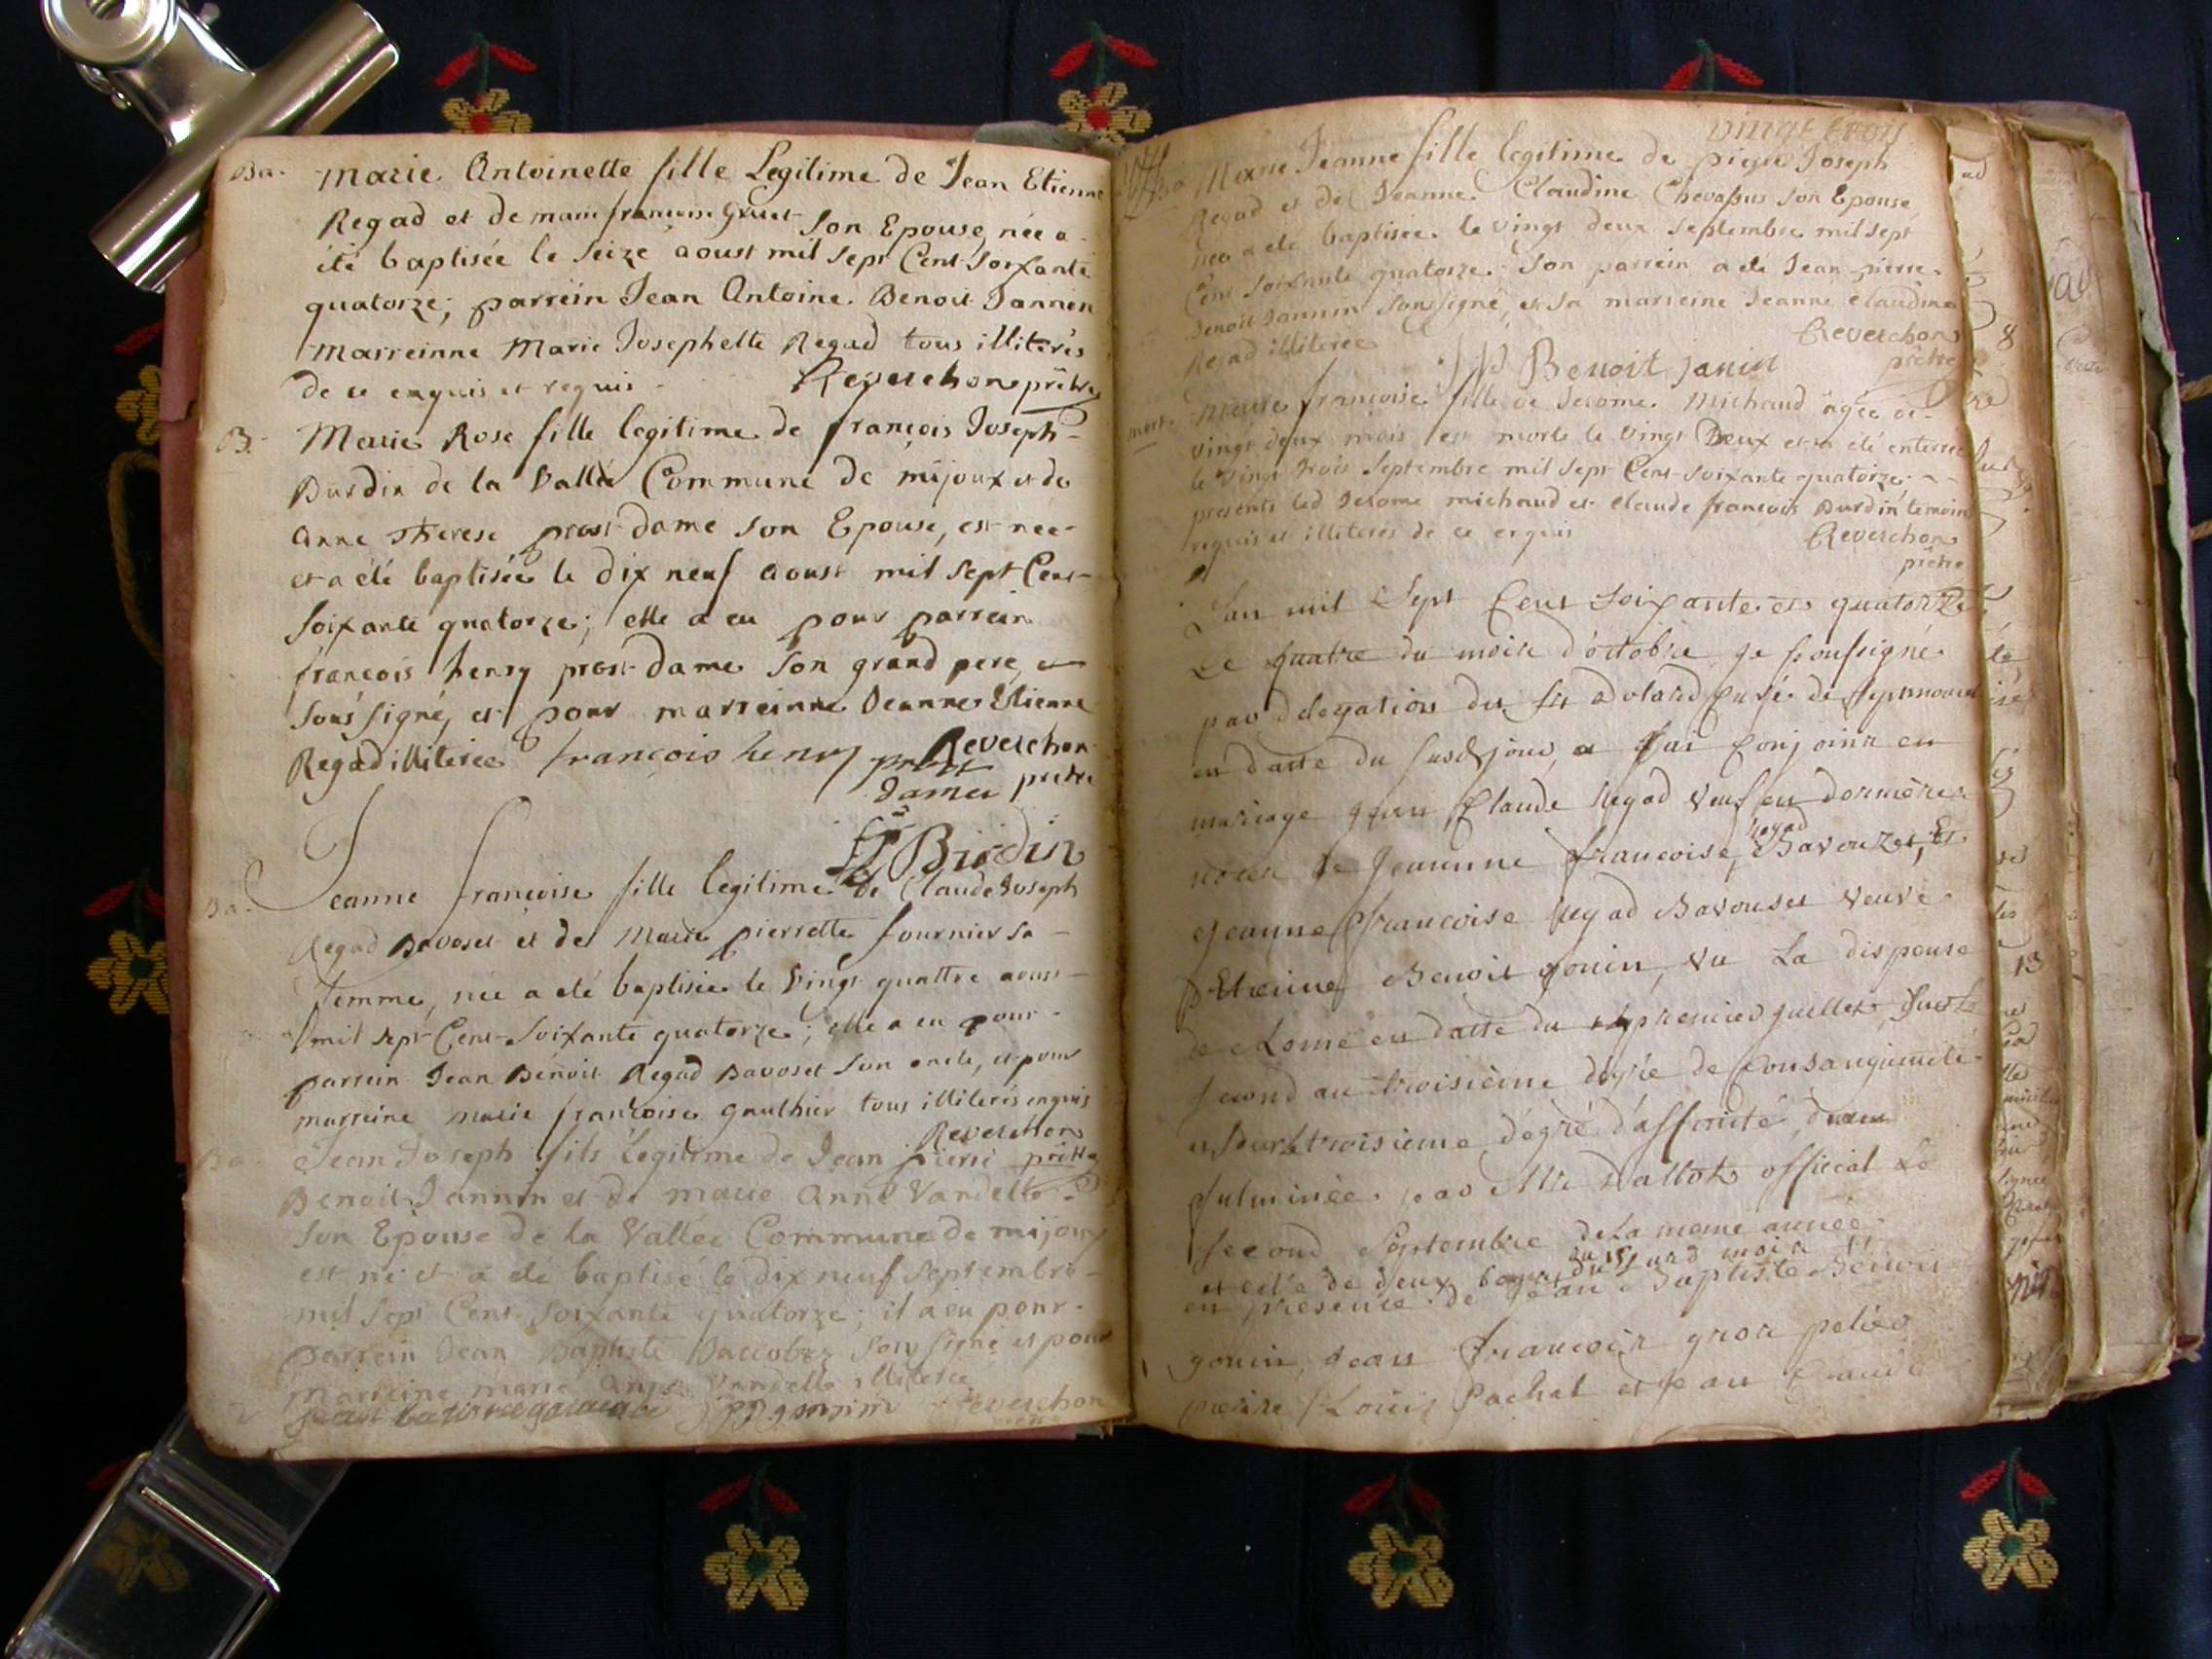 Ba. Marie Antoinette fille Legitime de Jean Etienne
Regad et de marie francoise Gruet son Epouse, née a
été baptisée le seize aoust mil sept Cent soixante
quatorze; parrein Jean Antoine Benoit Jannin
marreinne Marie Josephette Regad tous illiterés
de ce enquis et requis. Reverchon prêtre
B. Marie Rose fille legitime de françois Joseph
Burdin de la Vallée Commune de mijoux et de
Anne Therese prost dame son Epouse, est née
et a été baptisée le dix neuf aoust mil sept Cent
soixante quatorze; elle a eu pour parrein
françois henry prost dame son grand pere, et
sous signé, et pour marreinne Jeanne Etienne
Regad illiterée françois henry prost Reverchon
damer prêtre
Burdin
Ba. Jeanne françoise fille legitime de Claude Joseph
Regad Bavoset et de Marie pierrette fournier sa
femme, née a été baptisée le vingt quattre aoust
mil sept Cent soixante quatorze; elle a eu pour
parrein Jean Benoit Regad Bavoset son oncle, et pour
marreine marie françoise gauthier tous illiterés enquis
Reverchon
Ba. Jean Joseph fils legitime de Jean pierre prêtre
Benoit Jannin et de marie Anne Vandelle
son Epouse de la Vallée Commune de mijoux
est né et a été baptisé le dix neuf septembre
mil sept Cent soixante quatorze; il a eu pour
parrein Jean Baptiste sous signé et pour
marreine marie Anne Vandelle illiterée
Reverchon
vingt trois
Ba Marie Jeanne fille legitime de pierre Joseph
Regad et de Jeanne Claudine Chevassus son Epouse
née a été baptisée le vingt deux septembre mil sept
Cent soixante quatorze. son parrein a été Jean pierre
Benoit Jannin sousigné, et sa marreine Jeanne claudine
Regad illiterée Reverchon
JP Benoit janin prêtre
mort. Marie françoise fille de Jerome Michaud agée de
vingt deux mois est morte le vingt Deux et a été enterrée
le vingt trois septembre mil sept Cent soixante quatorze
presents led Jerome michaud et claude françois Burdin témoins
requis et illiterés de ce enquis Reverchon
prêtre
L'an mil Sept Cent soixante et quatorze
Le quatre du mois d'octobre je soussigné
par delegation du sr curé de septmoncel
en datte du susd jour, a conjoint en
mariage jean Claude Regad veuf en dernière
noces de Jeanne francoise Regad Bavouzet, Et
Jeanne francoise Regad Bavouset veuve
d'Etienne Benoit gonin, vu La dispense
de Rome en datte du premier juillet, sur le
second au troisième dégré de consanguinité
et sur le troisieme dégré d'affinité, duem
fulminée par Mr Dallot official Le
second Septembre de La meme année
et celle de deux bans du second mois
en présence de Jean Baptiste Benoit
gonin, Jean francois gros pelier
Louis Pachat et Jean Claude